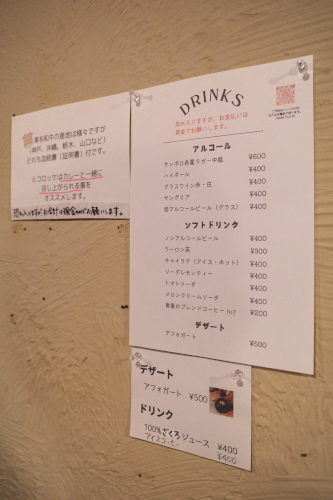 黒毛和牛の産地は様々ですが
(神戸、沖縄、栃木、山口など)
どれも血統書(証明書)付です。
※コロッケはカレーと一緒に
召し上がられる事を
オススメします。
恐れ入りますがお会計は現金のみでお願いします。
DRINKS
恐れ入りますが、お支払いは
現金でお願いします。
アルコール
サッポロ赤星ラガー中瓶 ¥600
ハイボール ¥400
グラスワイン赤・白 ¥400
サングリア ¥400
生アルコールビール(グラス) ¥400
ソフトドリンク
ノンアルコールビール ¥400
ウーロン茶 ¥300
チャイラテ(アイス・ホット) ¥400
ソーダレモンティー ¥400
トマトソーダ ¥400
メロンクリームソーダ ¥400
食後のブレンドコーヒー hot ¥200
デザート
アフォガート ¥500
デザート
アフォガート ¥500
ドリンク
100%ざくろジュース ¥400
アイスコーヒー ¥400